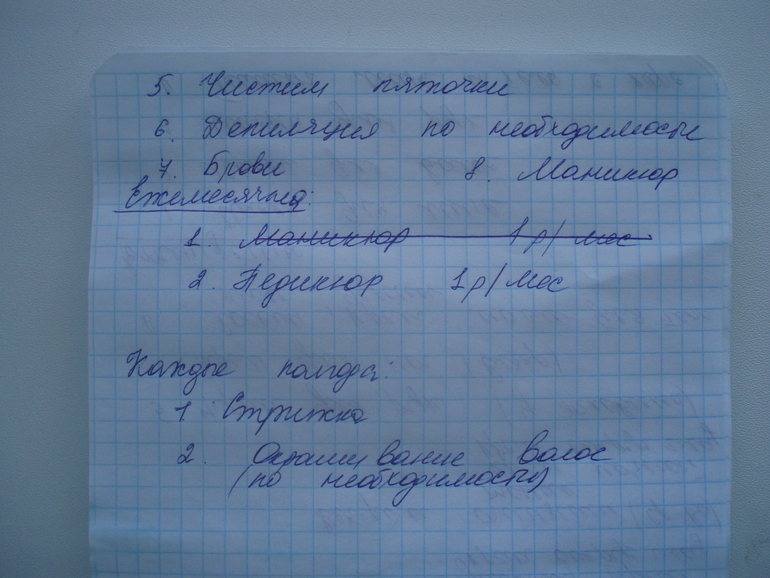 5. Чистим пяточки
6. Депиляция по необходимости
7. Брови 8. Маникюр
Ежемесячные:
1. Маникюр 1 р/мес
2. Педикюр 1 р/мес
Каждые полгода:
1 Стрижка
2. Окрашивание волос
(по необходимости)